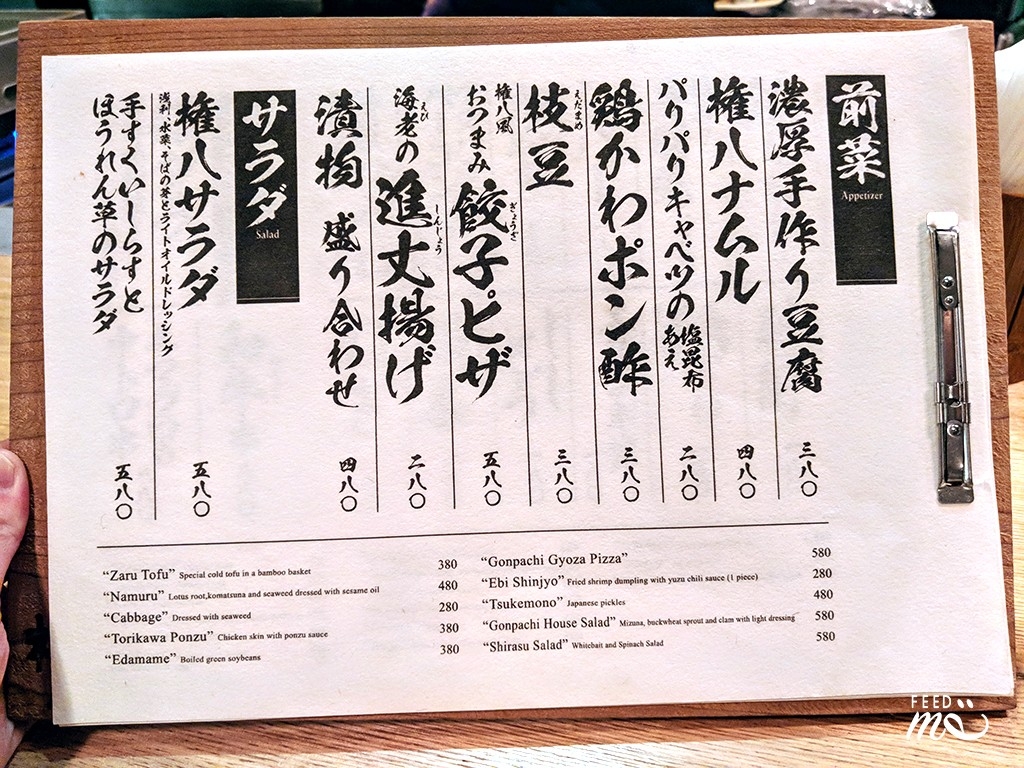 前菜
Appetizer
濃厚手作り豆腐 三八〇
権八ナムル 四八〇
パリパリキャベツの塩昆布あえ 二八〇
鶏かわポン酢 三八〇
枝豆 三八〇
えだまめ
権八風
おつまみ餃子ピザ 五八〇
ぎょうざ
海老の進丈揚げ 二八〇
えび
しんじょう
漬物 盛り合わせ 四八〇
サラダ
Salad
権八サラダ 五八〇
浅利、水菜、そばの芽とライトオイルドレッシング
手すくいしらすと
ほうれん草のサラダ 五八〇
“Zaru Tofu” Special cold tofu in a bamboo basket 380
“Namuru” Lotus root,komatsuna and seaweed dressed with sesame oil 480
“Cabbage” Dressed with seaweed 280
“Torikawa Ponzu” Chicken skin with ponzu sauce 380
“Edamame” Boiled green soybeans 380
“Gonpachi Gyoza Pizza” 580
“Ebi Shinjyo” Fried shrimp dumpling with yuzu chili sauce (1 piece) 280
“Tsukemono” Japanese pickles 480
“Gonpachi House Salad” Mizuna, buckwheat sprout and clam with light dressing 580
“Shirasu Salad” Whitebait and Spinach Salad 580
FEED
me